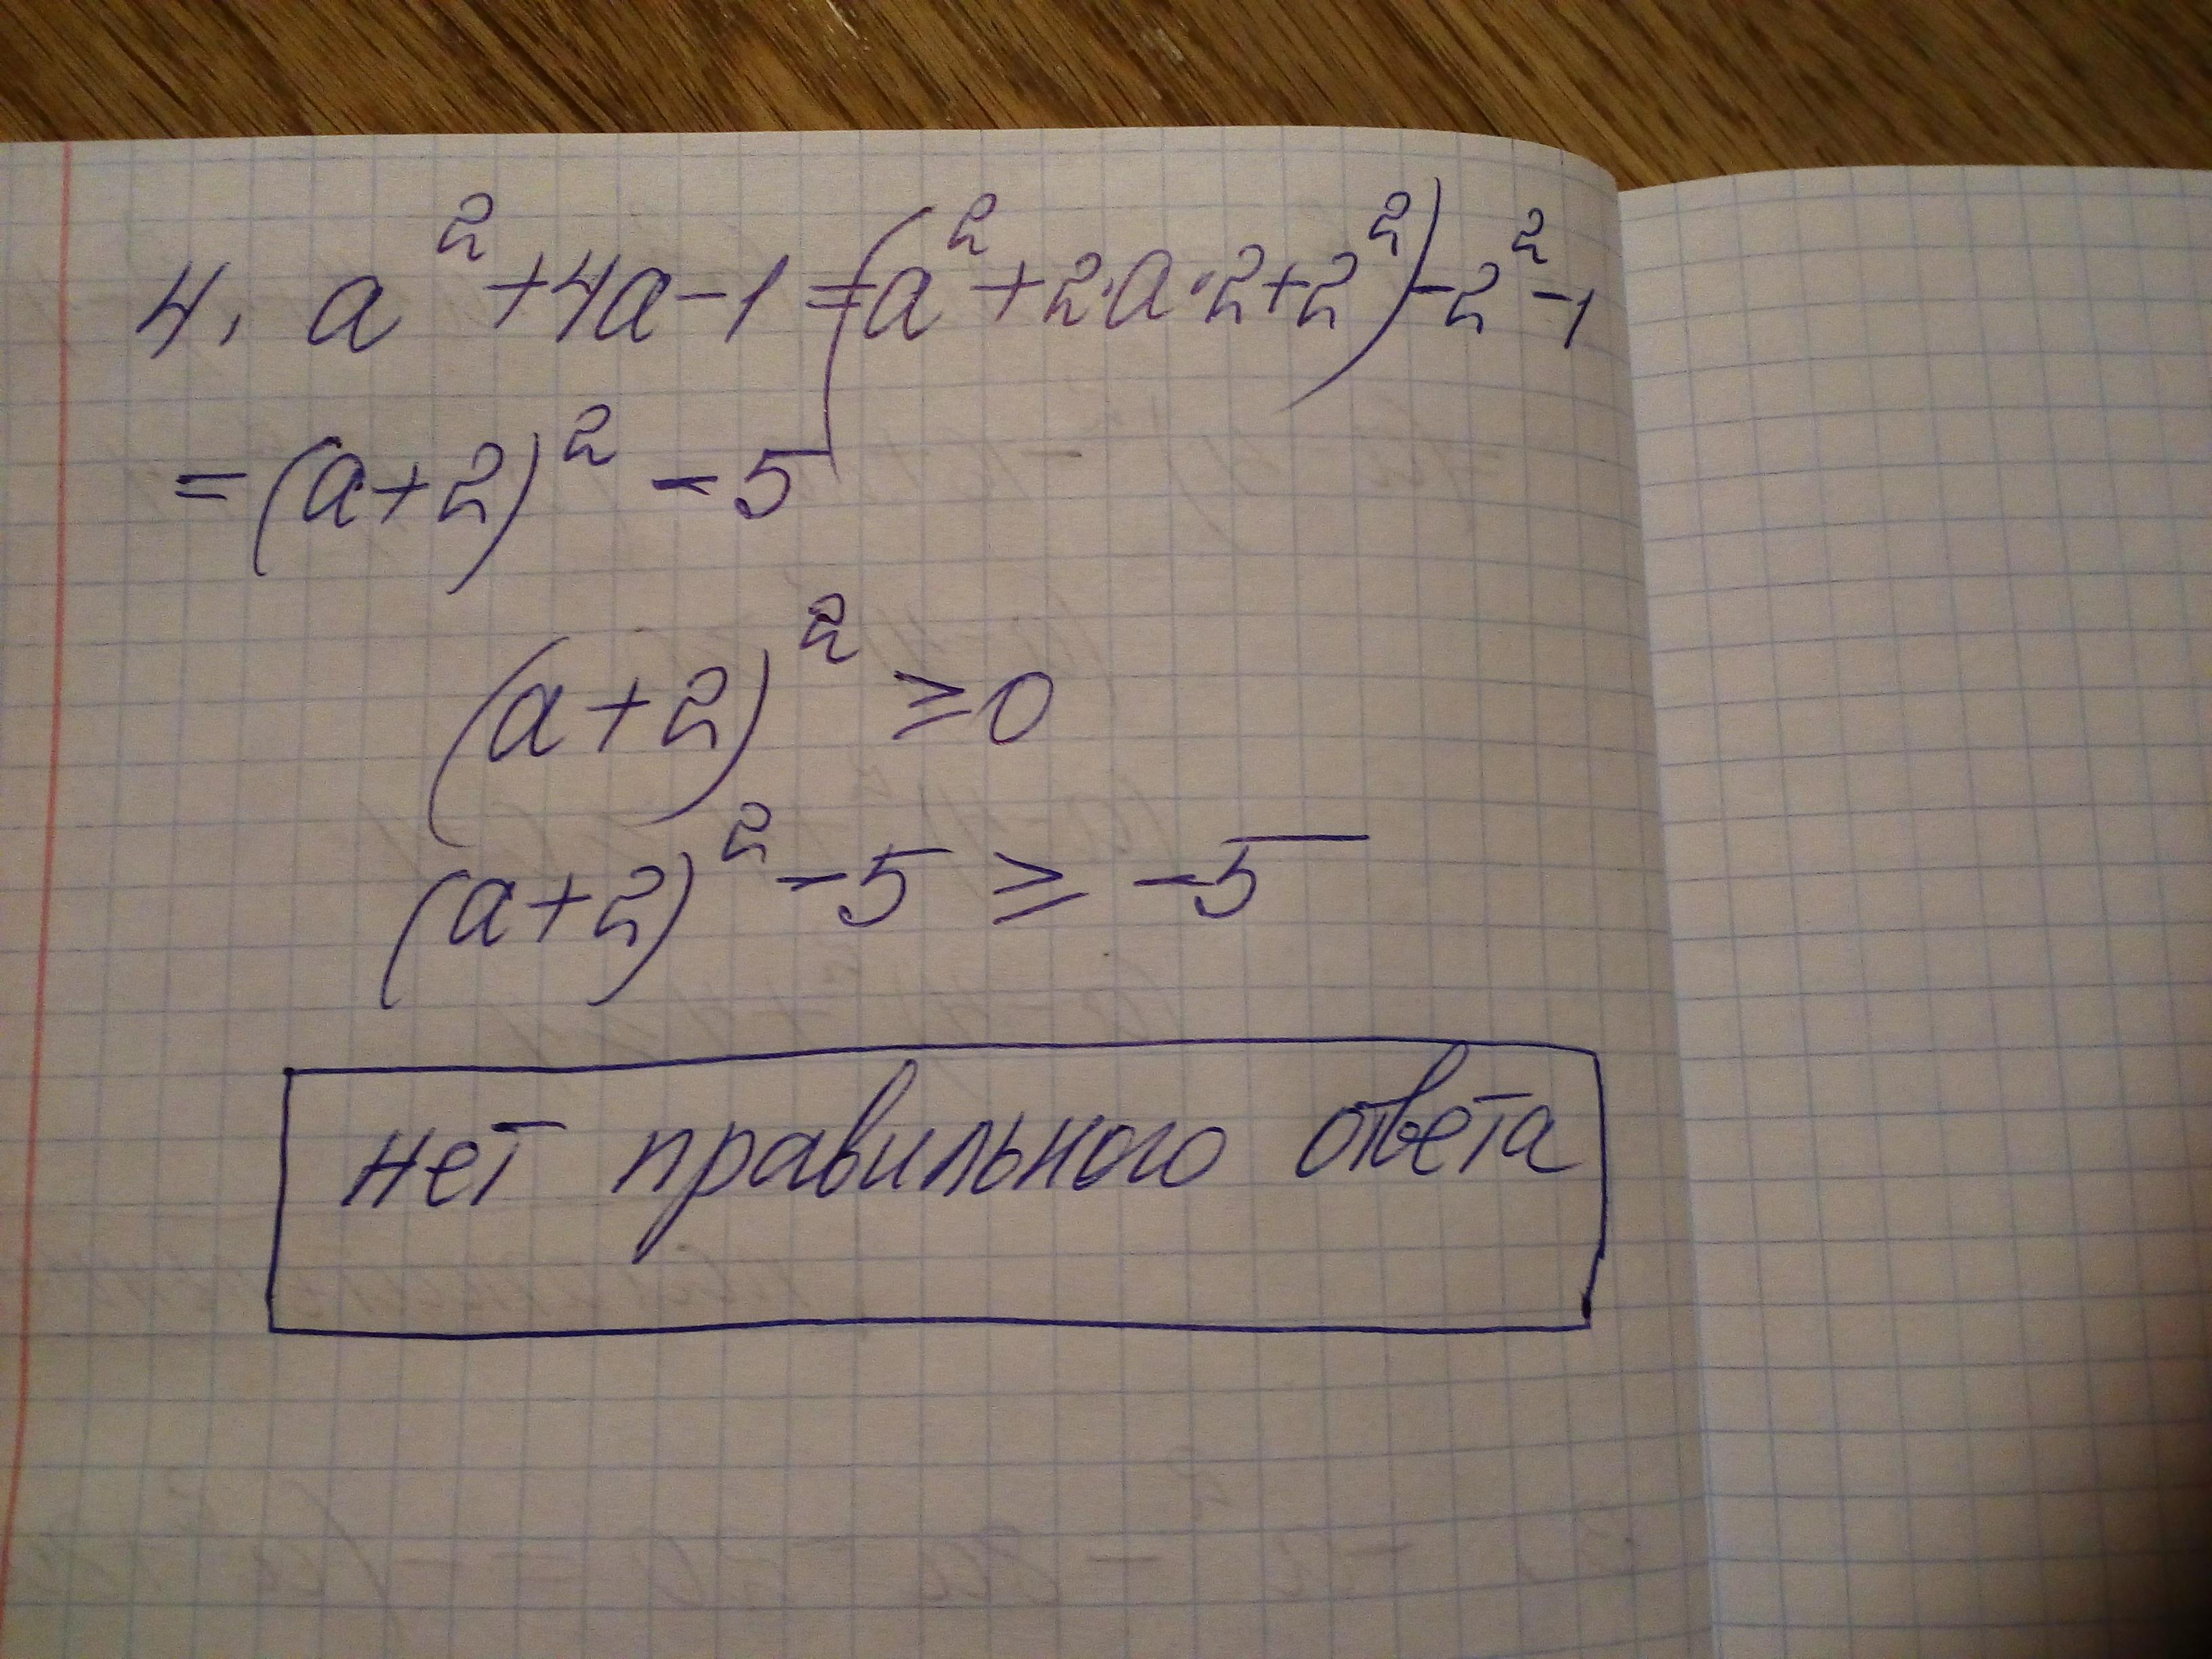 4. a² + 4a - 1 = (a² + 2·a·2 + 2²) - 2² - 1
= (a + 2)² - 5
(a + 2)² ≥ 0
(a + 2)² - 5 ≥ -5
нет правильного ответа